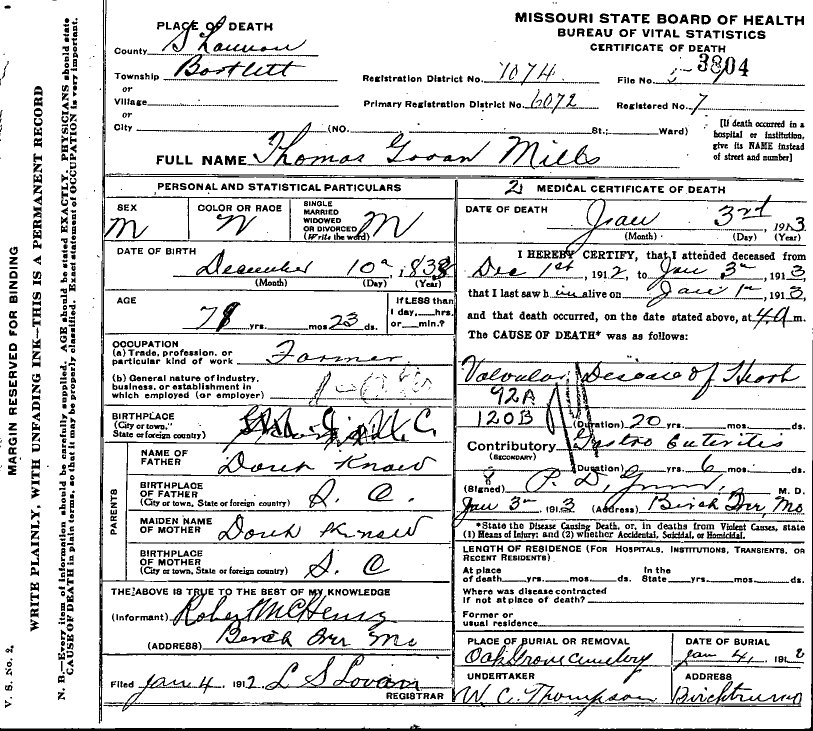 MISSOURI STATE BOARD OF HEALTH
BUREAU OF VITAL STATISTICS
CERTIFICATE OF DEATH
PLACE OF DEATH
County Shannon
Township Bartlett
or
Village
or
City (NO. St.; Ward)
Registration District No. 1074
File No. 3804
Primary Registration District No. 6072
Registered No. 7
[If death occurred in a
hospital or institution,
give its NAME instead
of street and number]
FULL NAME Thomas Govan Mills
PERSONAL AND STATISTICAL PARTICULARS
SEX
M
COLOR OR RACE
W
SINGLE
MARRIED
WIDOWED
OR DIVORCED
(Write the word)
M
DATE OF BIRTH
December 10
(Month) (Day) (Year)
AGE
yrs. mos. 23 ds.
If LESS than
1 day, hrs.
or min.?
OCCUPATION
(a) Trade, profession, or
particular kind of work Farmer
(b) General nature of industry,
business, or establishment in
which employed (or employer)
BIRTHPLACE
(City or town,
State or foreign country)
PARENTS
NAME OF
FATHER Dont Know
BIRTHPLACE
OF FATHER
(City or town, State or foreign country) S. C.
MAIDEN NAME
OF MOTHER Dont Know
BIRTHPLACE
OF MOTHER
(City or town, State or foreign country) S. C
THE ABOVE IS TRUE TO THE BEST OF MY KNOWLEDGE
(Informant) Robert McHenry
(ADDRESS) Birch Tree Mo
Filed Jan 4 1912 L S Lovan
REGISTRAR
2 MEDICAL CERTIFICATE OF DEATH
DATE OF DEATH Jan 3rd, 1913
(Month) (Day) (Year)
I HEREBY CERTIFY, that I attended deceased from
Dec 1st, 1912, to Jan 3rd, 1913
that I last saw him alive on Jan 1st, 1913,
and that death occurred, on the date stated above, at 4 a m.
The CAUSE OF DEATH* was as follows:
Valvular Disease of Heart
92A
120B
(Duration) 20 yrs. mos. ds.
Contributory Gastro Enteritis
(SECONDARY)
(Duration) 6 yrs. mos. ds.
(Signed) P. D. M. D.
Jan 3rd, 1913 (Address) Birch Tree, Mo
*State the Disease Causing Death, or, in deaths from Violent Causes, state
(1) Means of Injury; and (2) whether Accidental, Suicidal, or Homicidal.
LENGTH OF RESIDENCE (FOR HOSPITALS, INSTITUTIONS, TRANSIENTS, OR
RECENT RESIDENTS)
At place
of death yrs. mos. ds.
In the
State yrs. mos. ds.
Where was disease contracted
if not at place of death?
Former or
usual residence
PLACE OF BURIAL OR REMOVAL
Oak Grove cemetery
DATE OF BURIAL
Jan 4, 191
UNDERTAKER
W. C. Thompson
ADDRESS
Birchtree mo
V. S. No. 2.
MARGIN RESERVED FOR BINDING
WRITE PLAINLY, WITH UNFADING INK—THIS IS A PERMANENT RECORD
N. B.—Every item of information should be carefully supplied. AGE should be stated EXACTLY. PHYSICIANS should state
CAUSE OF DEATH in plain terms, so that it may be properly classified. Exact statement of OCCUPATION is very important.